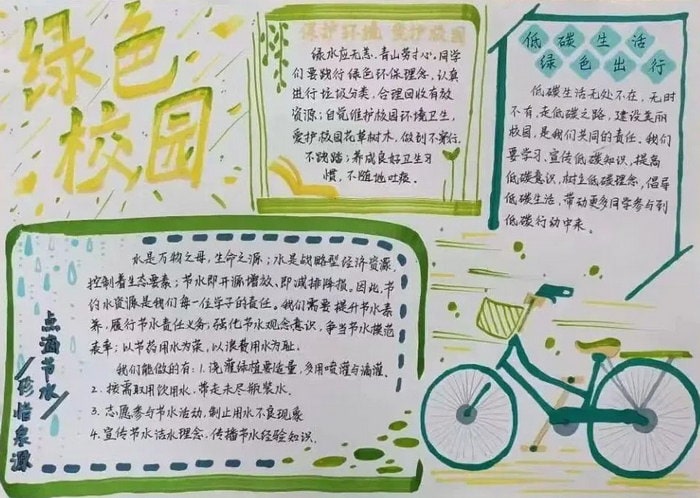 绿色
校园
保护环境 爱护校园
绿水应无恙、青山劳才心,同学
们要践行绿色环保理念,认真
进行垃圾分类,合理回收有效
资源;自觉维护校园环境卫生,
爱护校园花草树木,做到不穿行,
不践踏;养成良好卫生习
惯,不随地吐痰。
低碳生活
绿色出行
低碳生活无处不在,无时
不有,走低碳之路,建设美丽
校园,是我们共同的责任。我们
要学习、宣传低碳知识,提高
低碳意识,树立低碳理念,倡导
低碳生活,带动更多同学参与到
低碳行动中来。
点滴节水
珍惜泉源
水是万物之母,生命之源;水是战略型经济资源,
控制着生态要素;节水即开源增放、即减排降损。因此,节
约水资源是我们每一位学子的责任。我们需要提升节水素
养,履行节水责任义务;强化节水观念意识,争当节水模范
表率;以节约用水为荣,以浪费用水为耻。
我们能做的有:1.浇灌绿植要适量,多用喷灌与滴灌。
2.按需取用饮用水,带走未尽瓶装水。
3.志愿参与节水活动,制止用水不良现象
4.宣传节水洁水理念,传播节水经验知识。